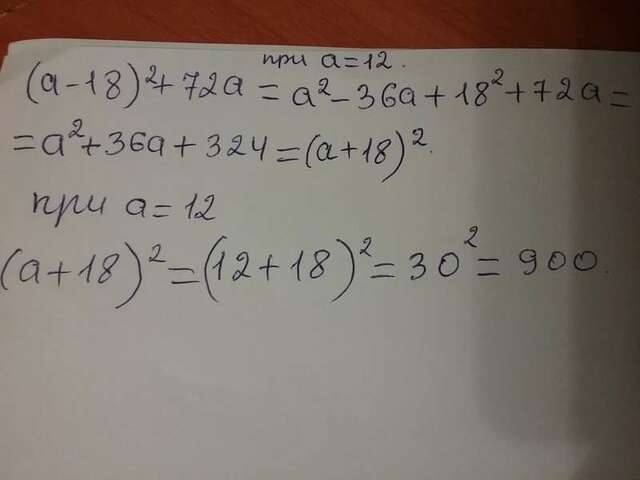 при a=12.
(a-18)²+72a=a²-36a+18²+72a=
=a²+36a+324=(a+18)².
при a=12
(a+18)²=(12+18)²=30²=900.